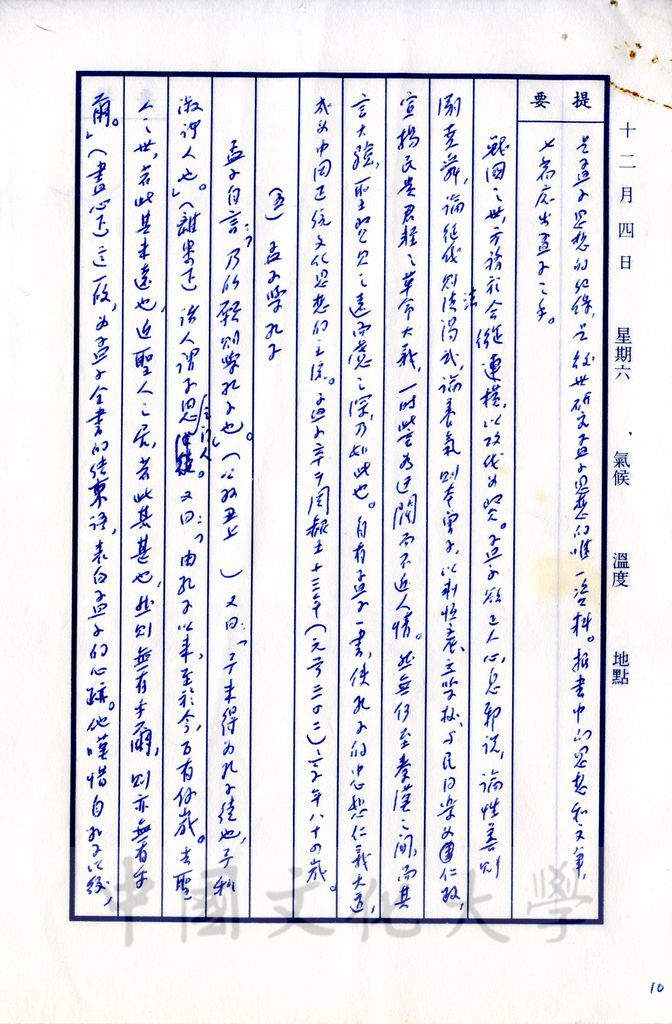 十二月四日 星期六 氣候 溫度 地點
提要
是孟子思想的紀錄,是後世研究孟子思想的唯一資料。按書中的思想和文章,
七篇應出孟子之手。
戰國之世,方務於合縱連橫,以攻伐為賢。孟子欲正人心,息邪說,論性善則
法堯舜,論征伐則法湯武,論養氣則本曾子,以制恒產、立學校、與民同樂為國仁政,
宣揚民貴君輕之革命大義,一時皆言為迂闊而不近人情。然無何至秦漢之間,而其
言大驗,聖賢見之遠而慮之深,乃如此也。自有孟子一書,使孔子的忠恕仁義大道,
成為中國正統文化思想的主流。孟子卒于周赧王十三年(元前三〇二),享年八十四歲。
(五)孟子學孔子
孟子自言:「乃所願則學孔子也。」(公孫丑上 )又曰:「予未得為孔子徒也,予私
淑諸人也。」(離婁下 諸人謂子思之門人。又曰:「由孔子以來,至於今,百有餘歲。去聖
人之世,若此其未遠也,近聖人之居,若此其甚也,然則無有乎爾,則亦無有乎
爾。」(盡心下)這一段,為孟子全書的結束語,表白孟子的心跡。他嘆惜自孔子以後,
中國文化大學
10